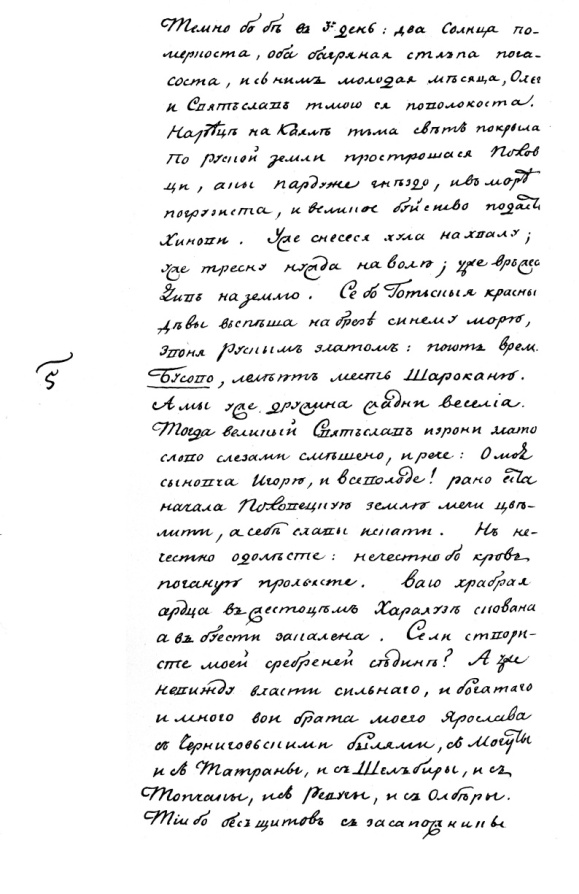 Темно бо бѣ въ г҃ день: два солнца по-
меркоста, оба багряная стлъпа пога-
соста, и съ нимъ молодая мѣсяца, Олегъ
и Святъславъ тмою ся поволокоста.
На рѣцѣ на Каялѣ тьма свѣтъ покрыла
По Руской земли прострошася Полов
ци, аки пардуже гнѣздо, и въ морѣ
погрузиста, и великое буйство подасть
Хинови. Уже снесеся хула на хвалу;
уже тресну нужда на волю; уже връжеса
Дивь на землю. Се бо Готьскыя красныя
дѣвы въспѣша на брезѣ синему морю,
звоня Рускымъ златомъ: поютъ время
Бусово, лелѣютъ месть Шароканю.
А мы уже дружина жадни веселія.
Тогда великій Святъславъ изрони злато
слово слезами смѣшено, и рече: О моя
сыновча Игорю, и Всеволоде! рано еста
начала Половецкую землю мечи цвѣ-
лити, а себѣ славы искати. Нъ не-
честно одолѣсте: нечестно бо кровь
поганую проліясте. Ваю храбрая
сердца въ жестоцѣмъ Харалузѣ скована
а въ буести закалена. Се ли створи-
сте моей сребреней сѣдинѣ? А уже
невижду власти сильнаго, и богатаго
и много вои брата моего Ярослава
съ Черниговьскими былями, съ Могуты
и съ Татраны, и съ Шельбиры, и съ
Топчакы, и съ Ревугы, и съ Олбѣры.
Тіи бо бесъ щитовь съ засапожникы
5